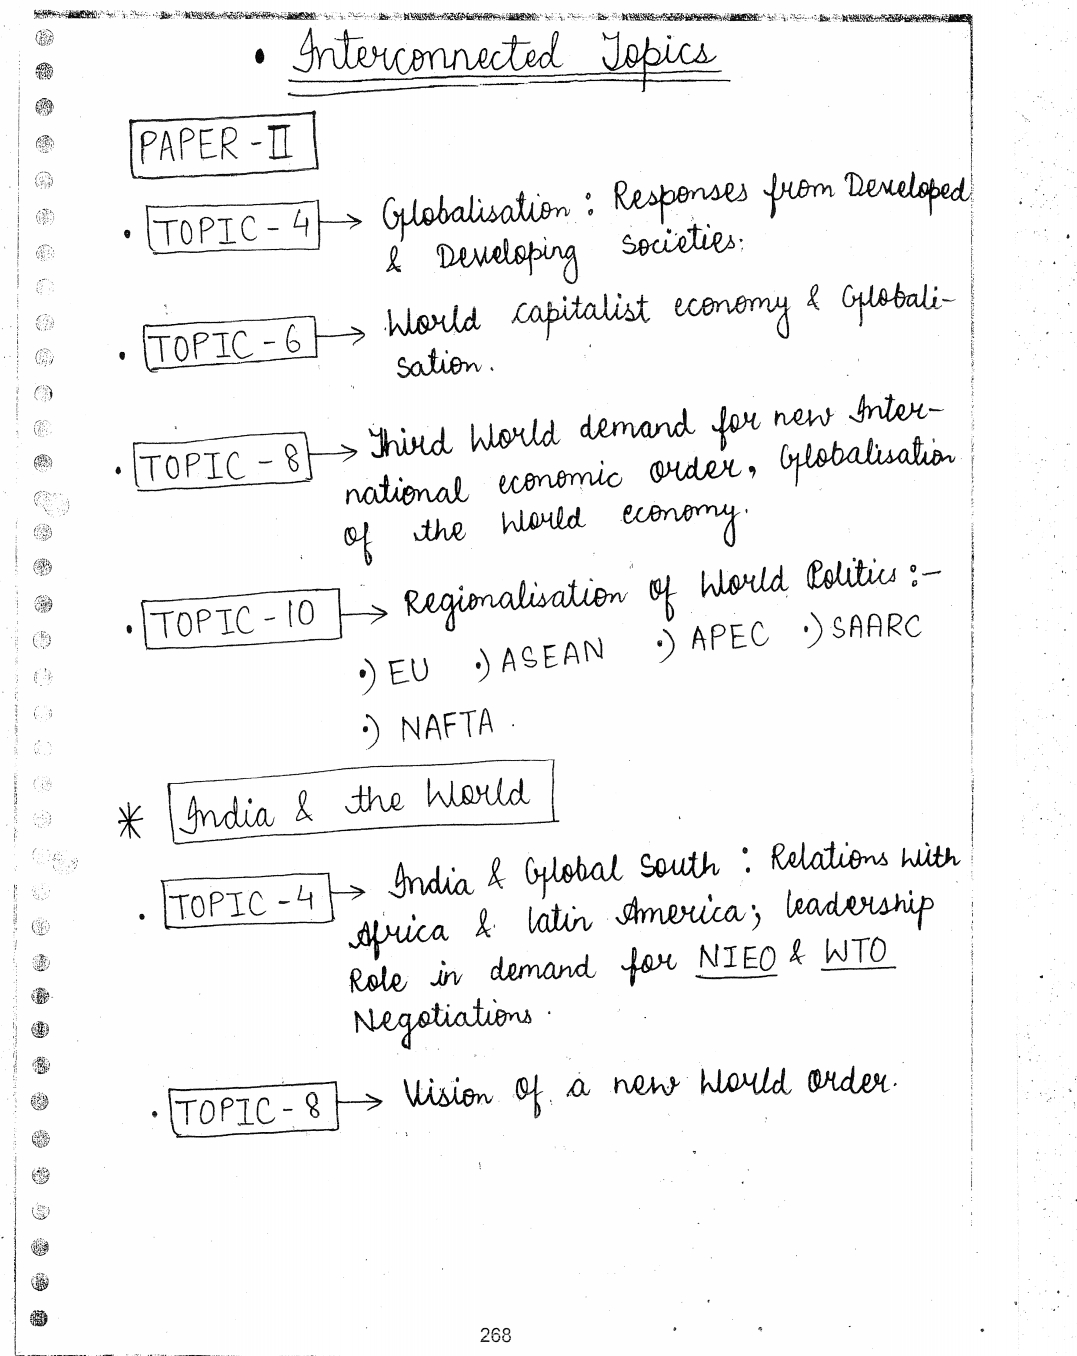 • Interconnected Topics
PAPER - II
• TOPIC - 4 → Globalisation : Responses from Developed
& Developing Societies.
• TOPIC - 6 → World capitalist economy & Globali-
sation.
• TOPIC - 8 → Third World demand for new Inter-
national economic order, Globalisation
of the World economy.
• TOPIC - 10 → Regionalisation of World Politics :-
•) EU •) ASEAN •) APEC •) SAARC
•) NAFTA .
* India & the World
• TOPIC - 4 → India & Global South : Relations with
Africa & latin America; leadership
Role in demand for NIEO & WTO
Negotiations .
• TOPIC - 8 → Vision of a new World order.
268